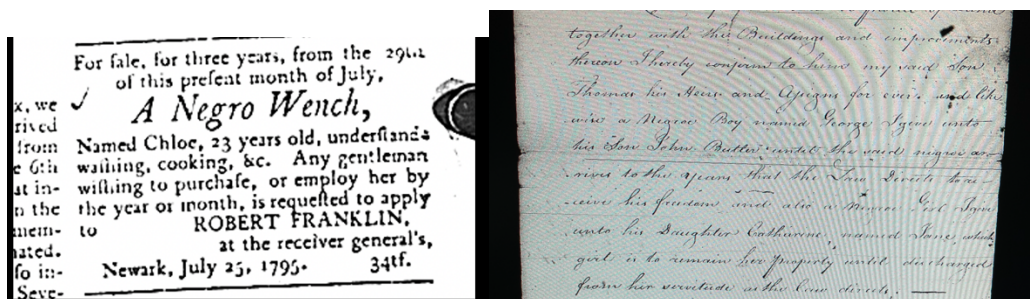 For sale, for three years, from the 29th
of this present month of July,
A Negro Wench,
Named Chloe, 23 years old, understands
washing, cooking, &c. Any gentleman
wishing to purchase, or employ her by
the year or month, is requested to apply
to ROBERT FRANKLIN,
at the receiver general's,
Newark, July 25, 1795. 34tf.
x, we
rived
from
e 6th
at in-
n the
mem-
ated.
so in-
Seve-
together with the Buildings and improvements
thereon I hereby confirm to him my said Son
Thomas his Heirs and Assigns for ever. and like
wise a Negroe Boy named George I give unto
his Son John Butler until the said negroe ar-
rives to the years that the Law Directs to re-
ceive his freedom and also a Negroe Girl I give
unto his Daughter Catharine, named Jane, which
girl is to remain her property until discharged
from her servitude as the Law directs.